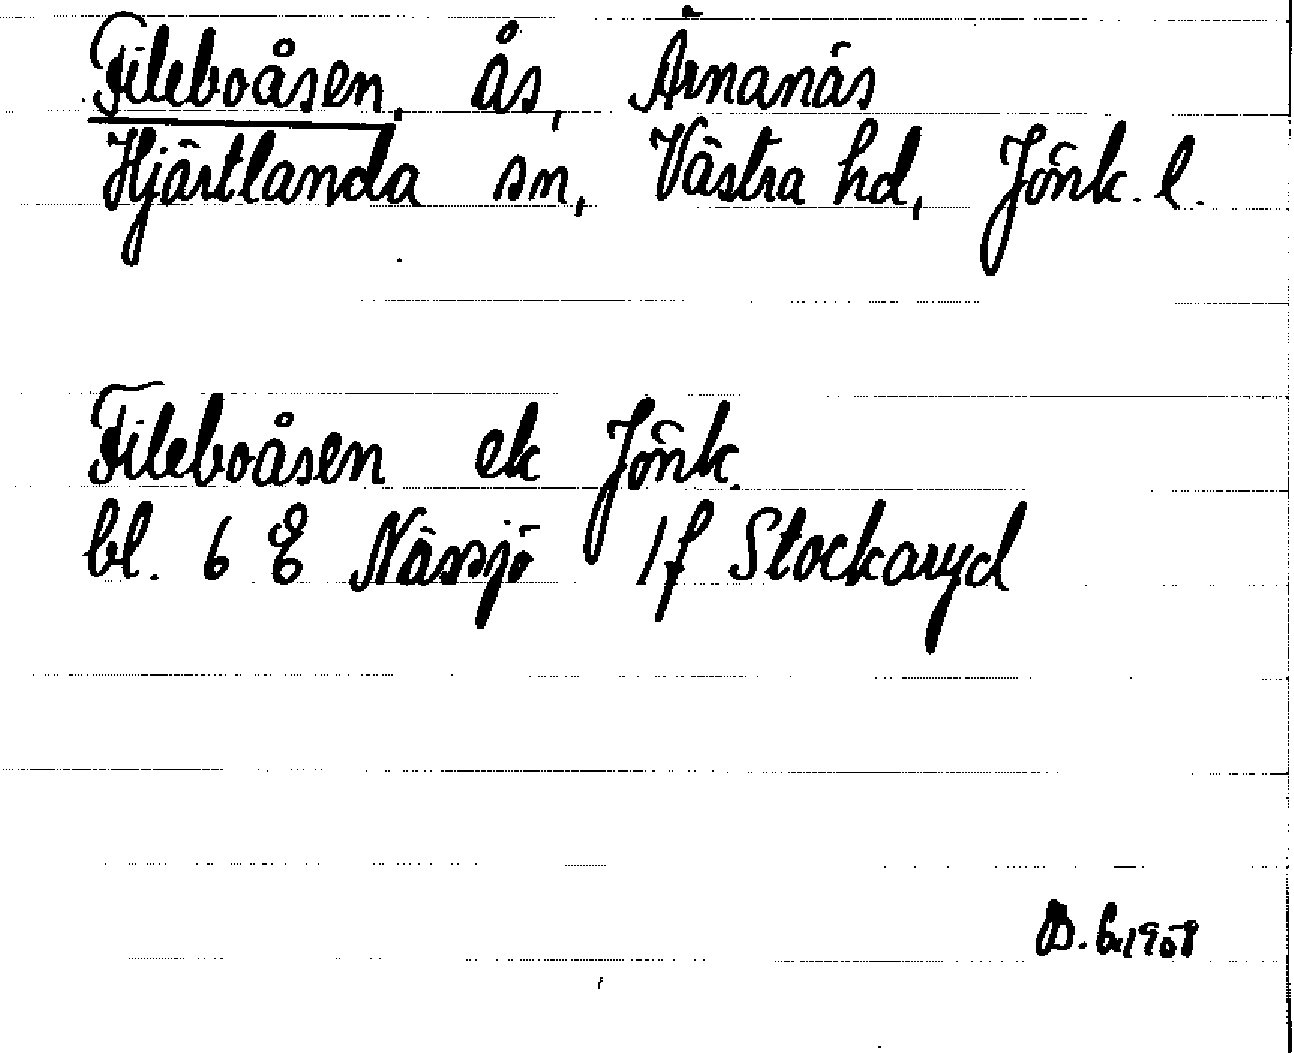 Fileboåsen, ås, Ärnanäs
Hjärtlanda sn, Västra hd, Jönk. l.
Fileboåsen ek Jönk.
bl. 6 E Nässjö 1f Stockaryd